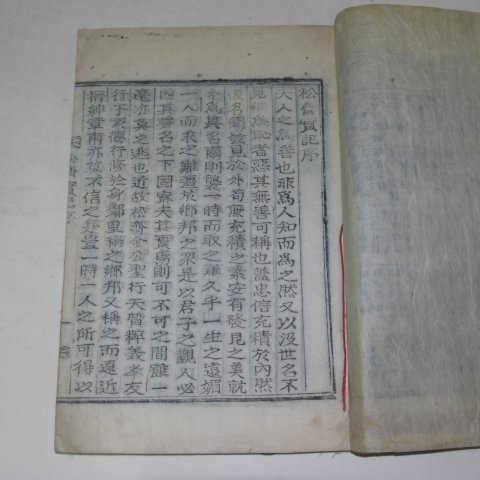 松齋實記序
夫人之爲善也非爲人知而爲之然又以沒世名不
見稱爲恥者惡其無善可稱也蓋忠信充積於內然
後名聞
見於外苟無充積之素安有發見之美就
令爲其名爾則襲一時而取之難久乎一生之遠媚
一人而求之難彌於鄉邦之衆是以君子之觀人必
因其譽名之下固察夫其實焉則可不可之間雖一
毫亦莫之逃也近故松齋金公聖行天質粹
孝友
行于家德行修於身鄰里稱之鄉邦又稱之而遠近
搢紳章甫亦莫不信之是豈一時一人之所可得以